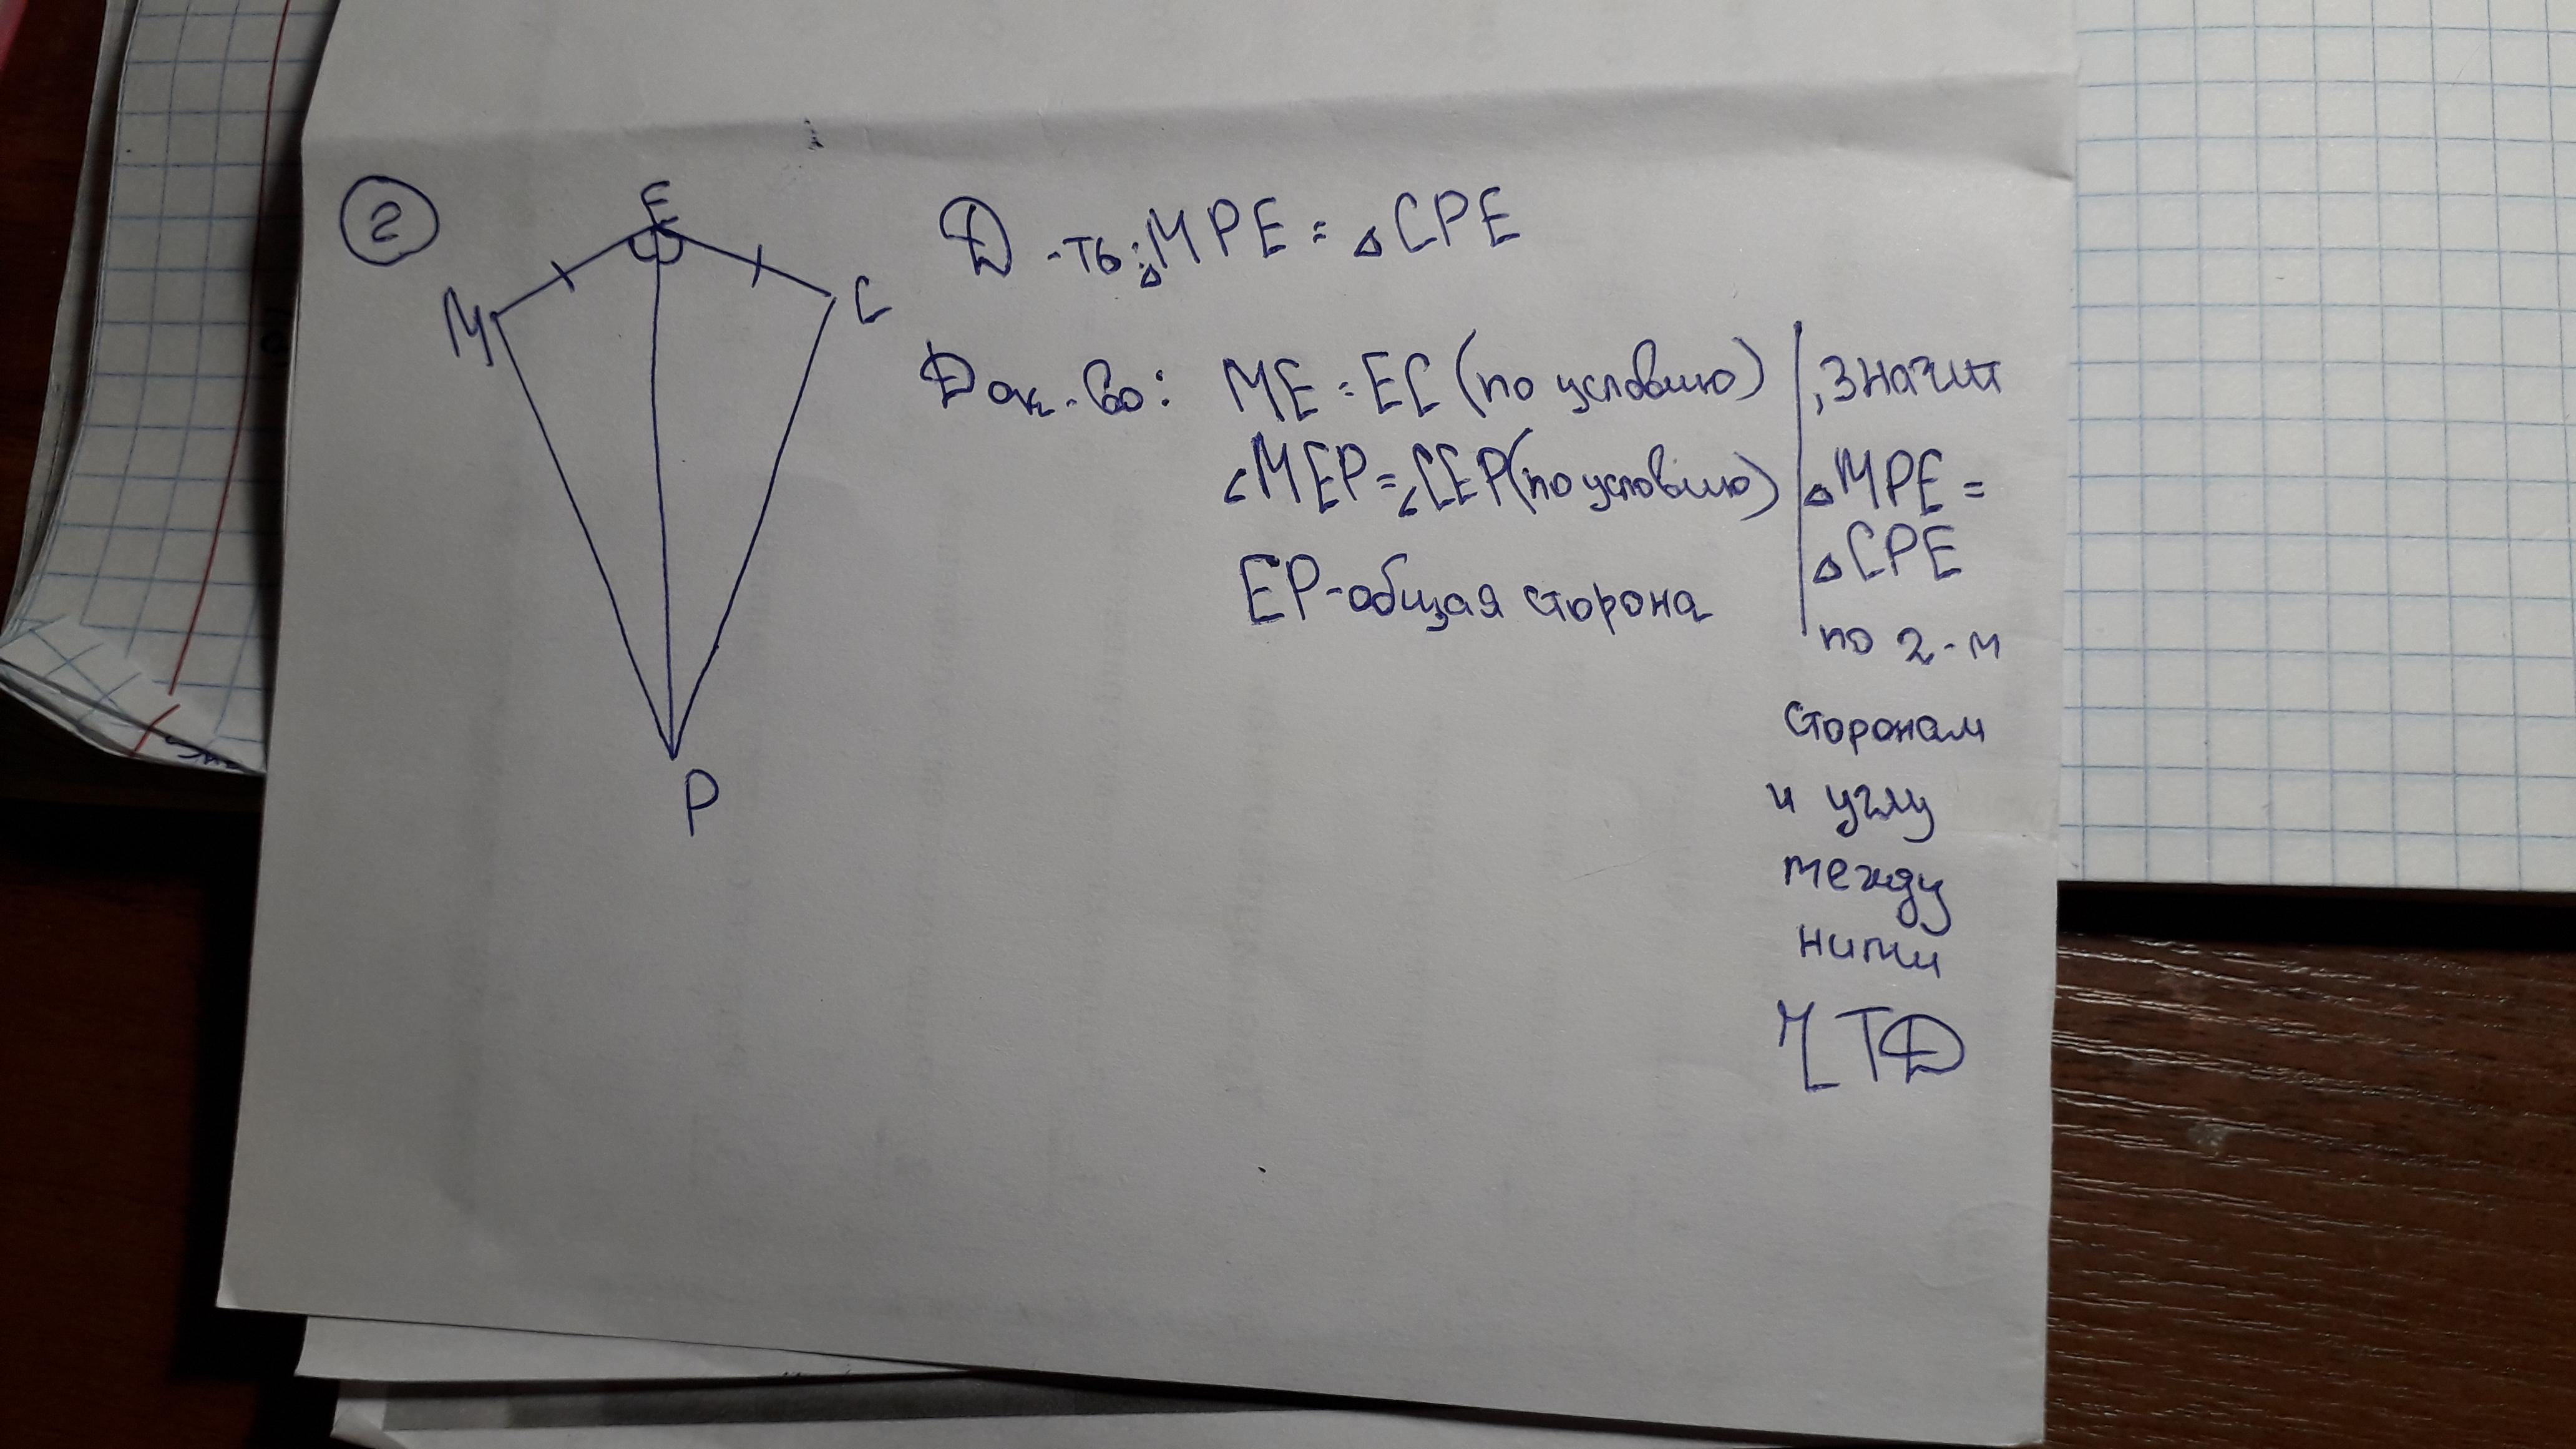 2
E
M
C
P
Д-ть: △MPE = △CPE
Док-во: ME = EC (по условию)
∠MEP = ∠CEP (по условию)
EP - общая сторона
, значит
△MPE =
△CPE
по 2-м
сторонам
и углу
между
ними
ЧТД